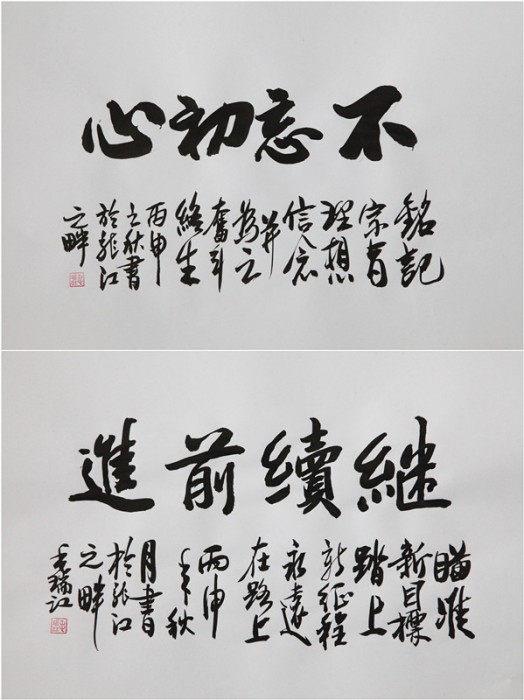 不忘初心
銘記
宗旨
理想
信念
并
為之
奮斗
終生
丙申
之秋書
於龍江
之畔
継續前進
瞄准
新目標
踏上
新征程
永遠
在路上
丙申
年秋
月書
於龍江
之畔
王瑞江